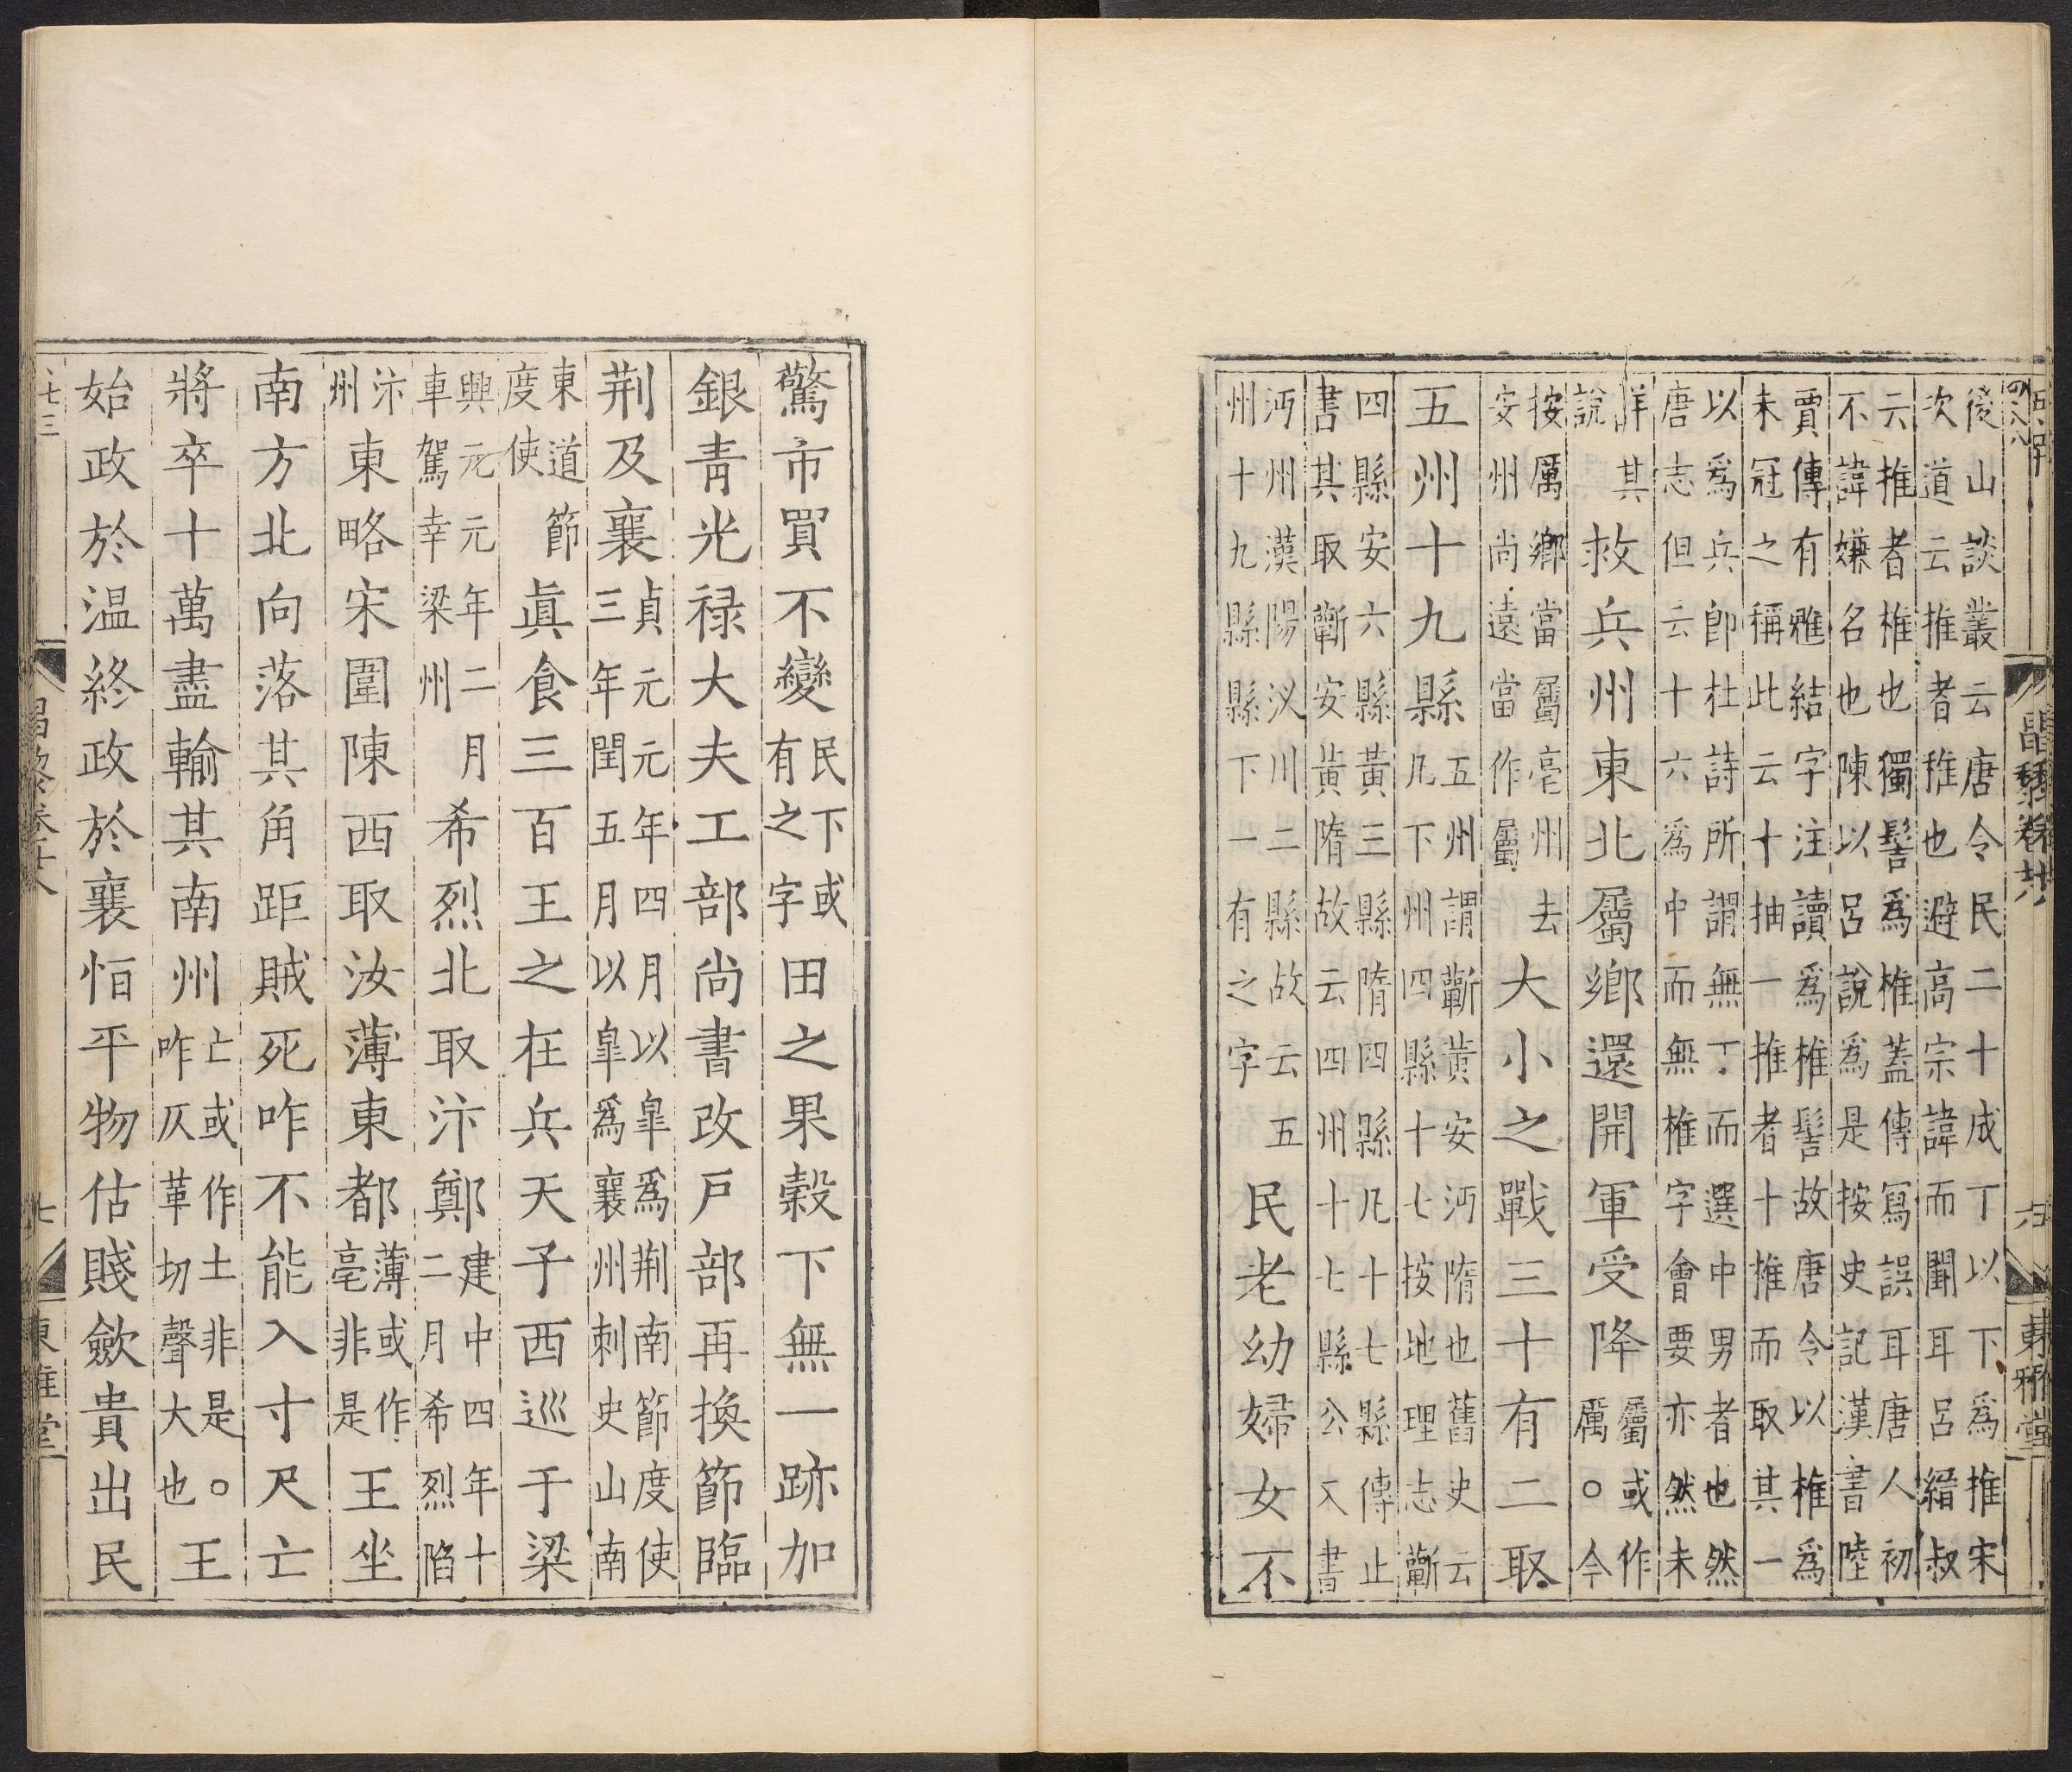 昌黎卷廿六 六 東雅堂
後山談叢云唐令民二十成丁以下爲推宋
次道云推者稚也避高宗諱而闕耳呂縉叔
云推者椎也獨髻爲椎蓋傳寫誤耳唐人初
不諱嫌名也陳以呂說爲是按史記漢書陸
賈傳有雅結字注讀爲椎髻故唐令以椎爲
未冠之稱此云十抽一推者十推而取其一
以爲兵卽杜詩所謂無丁而選中男者也然
唐志但云十六爲中而無椎字會要亦然未
詳其說救兵州東北屬鄉還開軍受降屬或作厲○今
按厲鄉當屬亳州去安州尚遠當作屬大小之戰三十有二取
五州十九縣五州謂蘄黃安沔隋也舊史云凡下州四縣十七按地理志蘄
四縣安六縣黃三縣隋四縣凡十七縣傳止
書其取蘄安黃隋故云四州十七縣公又書
沔州漢陽汊川二縣故云五州十九縣縣下一有之字民老幼婦女不
驚市買不變民下或有之字田之果穀下無一跡加
銀青光祿大夫工部尚書改戶部再換節臨
荆及襄貞元元年四月以皐爲荆南節度使三年閏五月以皐爲襄州刺史山南
東道節度使節眞食三百王之在兵天子西巡于梁
興元元年二月車駕幸梁州希烈北取汴鄭建中四年十二月希烈陷
汴州東略宋圍陳西取汝薄東都薄或作亳非是王坐
南方北向落其角距賊死咋不能入寸尺亡
將卒十萬盡輸其南州亡或作土非是○咋仄革切聲大也王
始政於温終政於襄恒平物估賤歛貴出民
昌黎卷廿八 七 東雅堂